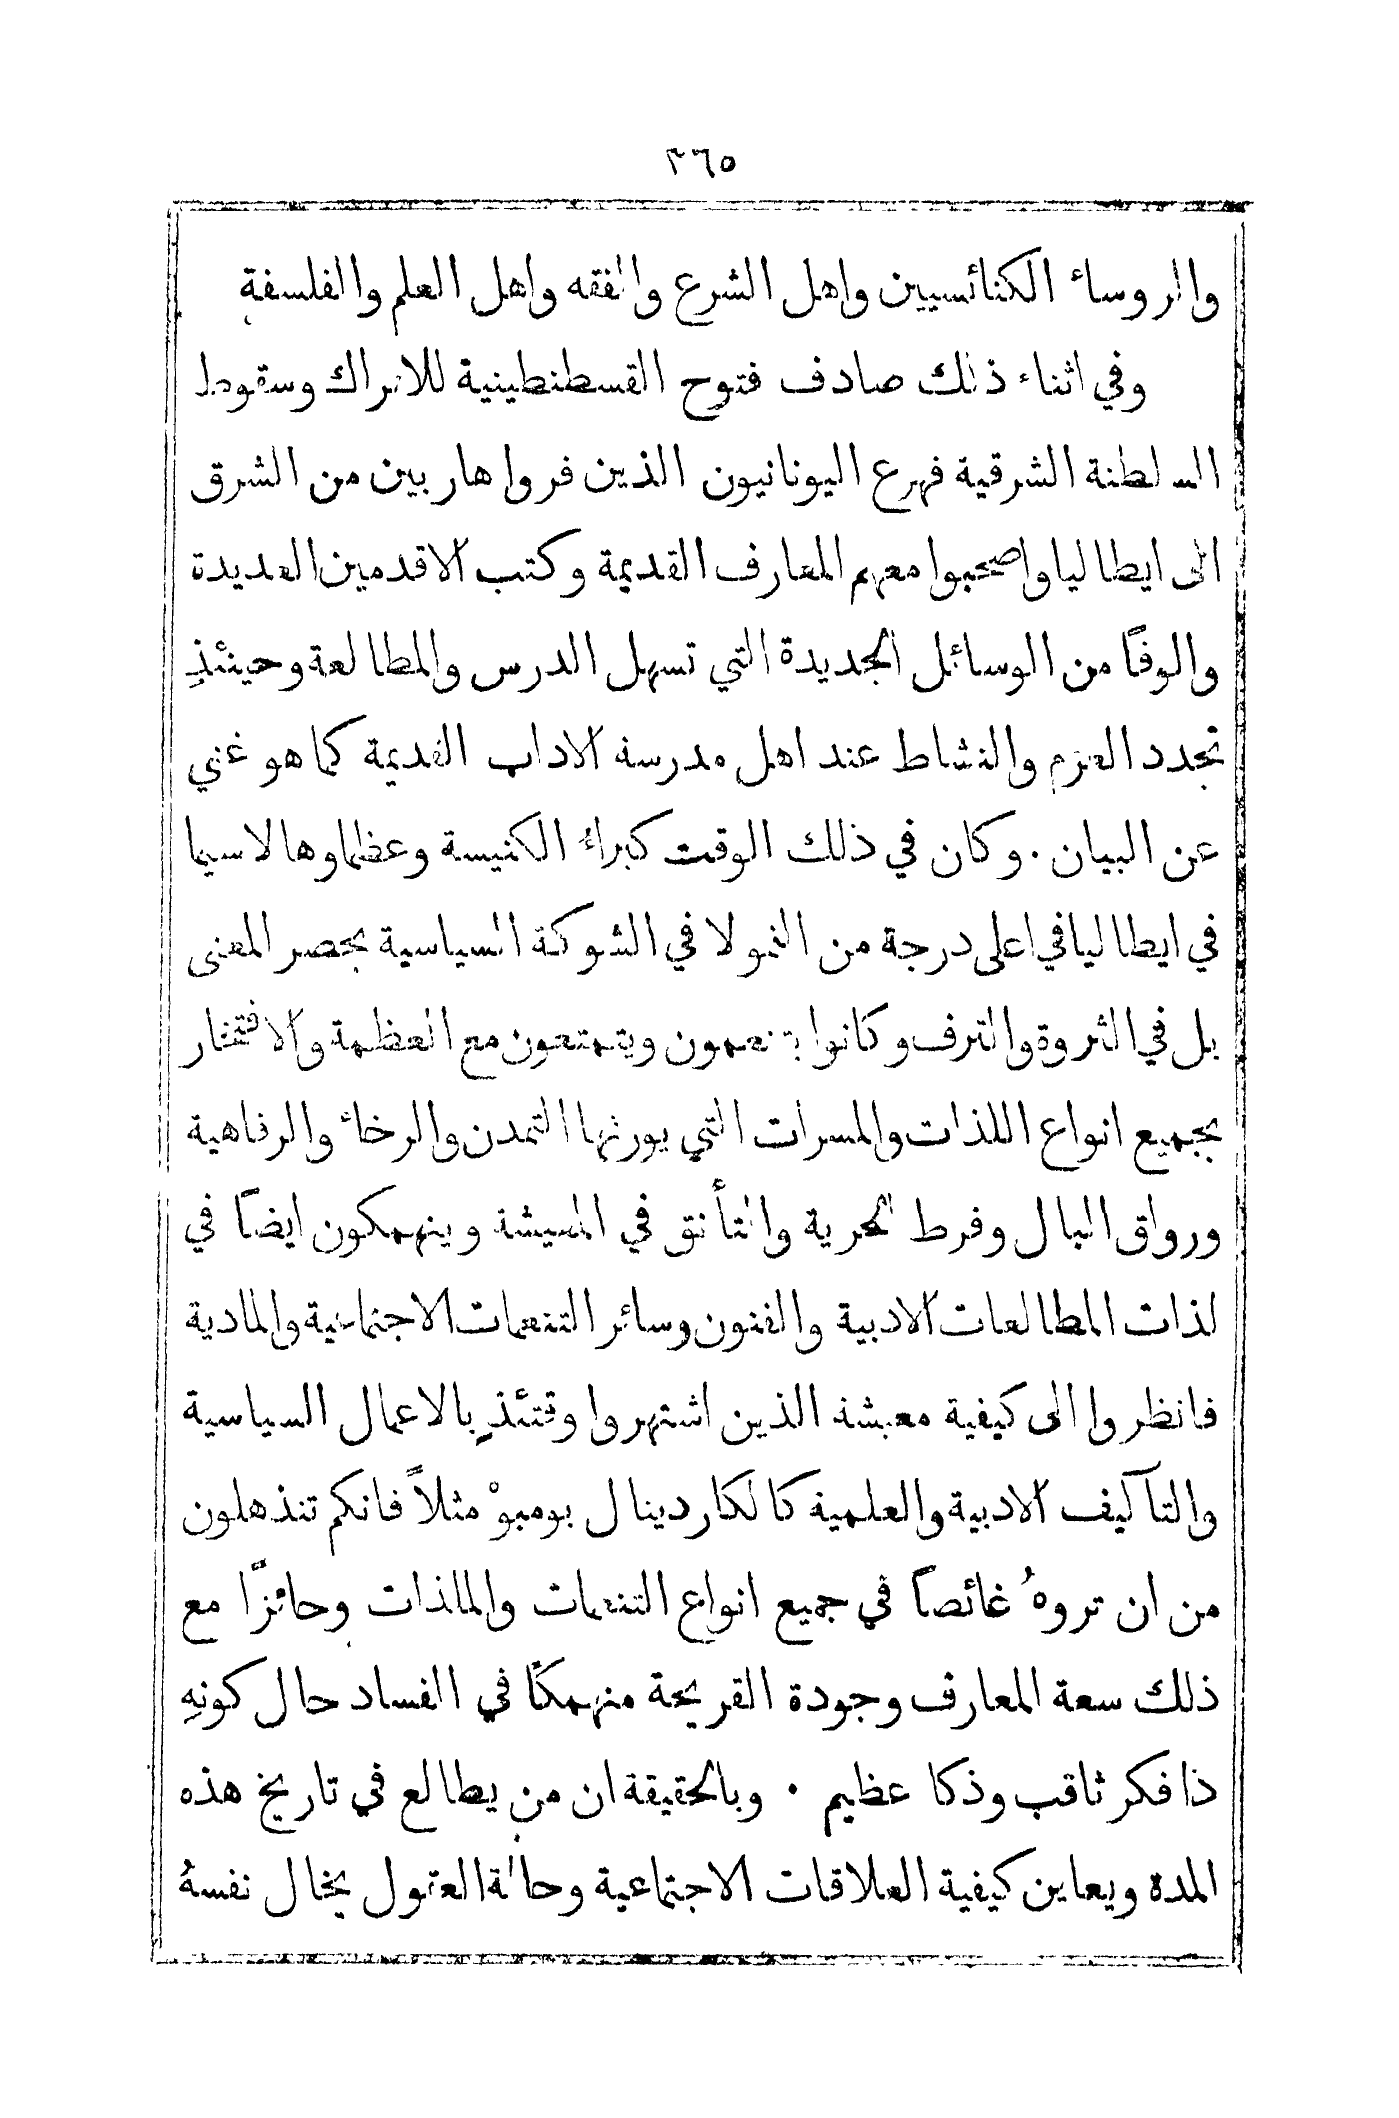 ٣٦٥
والروساء الكنائسيين واهل الشرع والفقه واهل العلم والفلسفة
وفي اثناء ذلك صادف فتوح القسطنطينية للاتراك وسقوط
السلطنة الشرقية فهرع اليونانيون الذين فروا هاربين من الشرق
الى ايطاليا واصحبوا معهم المعارف القديمة وكتب الاقدمين العديدة
والوفًا من الوسائل الجديدة التي تسهل الدرس والمطالعة وحينئذٍ
تجدد العزم والنشاط عند اهل مدرسة الاداب القديمة كما هو غني
عن البيان . وكان في ذلك الوقت كبراء الكنيسة وعظماوها لاسيما
في ايطاليا في اعلى درجة من النمو لا في الشوكة السياسية بحصر المعنى
بل في الثروة والترف وكانوا يتنعمون ويتمتعون مع العظمة والافتخار
بجميع انواع اللذات والمسرات التي يورثها التمدن والرخاء والرفاهية
ورواق البال وفرط الحرية والتأنق في المعيشة وينهمكون ايضًا في
لذات المطالعات الادبية والفنون وسائر التنعمات الاجتماعية والمادية
فانظروا الى كيفية معيشة الذين اشتهروا وقتئذٍ بالاعمال السياسية
والتآليف الادبية والعلمية كالكاردينال بومبوْ مثلاً فانكم تنذهلون
من ان تروهُ غائصًا في جميع انواع التنعمات والملاذات وحائزًا مع
ذلك سعة المعارف وجودة القريحة منهمكًا في الفساد حال كونهِ
ذا فكر ثاقب وذكا عظيم . وبالحقيقة ان من يطالع في تاريخ هذه
المدة ويعاين كيفية العلاقات الاجتماعية وحالة العقول يخال نفسهُ